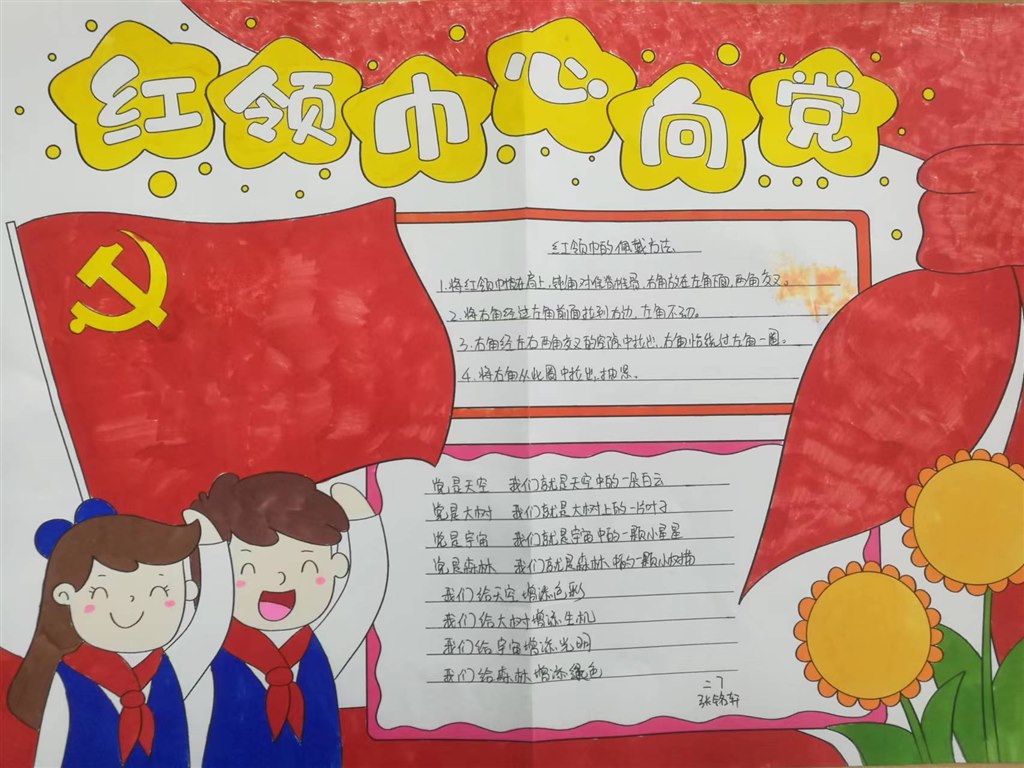 红领巾心向党
红领巾的佩戴方法
1.将红领巾披在肩上,钝角对准脊椎骨,右角放在左角下面,两角交叉。
2.将右角经过左角前面拉到右边,左角不动。
3.右角经左右两角交叉的空隙中拉出,右角恰绕过左角一圈。
4.将右角从此圈中拉出,抽紧。
党是天空 我们就是天空中的一朵白云
党是大树 我们就是大树上的一片叶子
党是宇宙 我们就是宇宙中的一颗小星星
党是森林 我们就是森林中的一颗小树苗
我们给天空增添色彩
我们给大树增添生机
我们给宇宙增添光明
我们给森林增添绿色
二丁